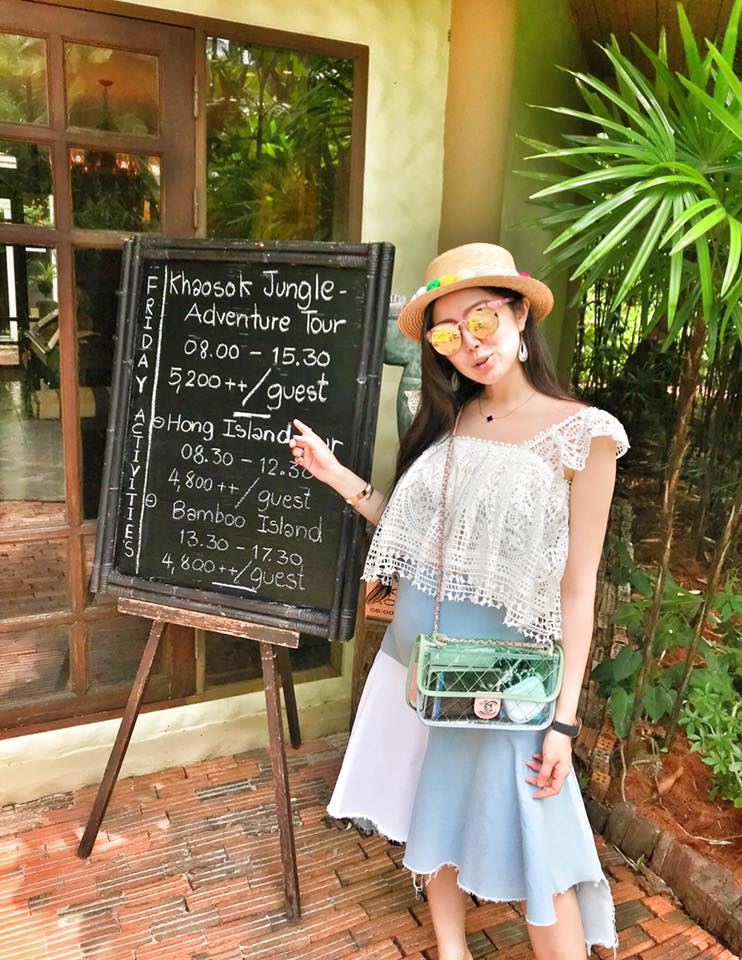 FRIDAY ACTIVITIES
Khaosok Jungle-
Adventure Tour
08.00 - 15.30
5,200++/guest
Hong Island
08.30 - 12.30
4,800++/guest
Bamboo Island
13.30 - 17.30
4,800++/guest